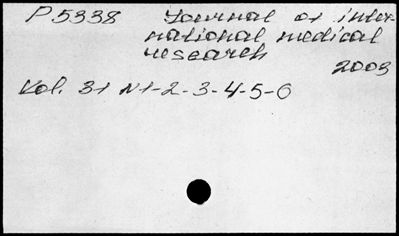 P5338 Journal of inter-
national medical
research
2003
Vol. 31 N1-2-3-4-5-6